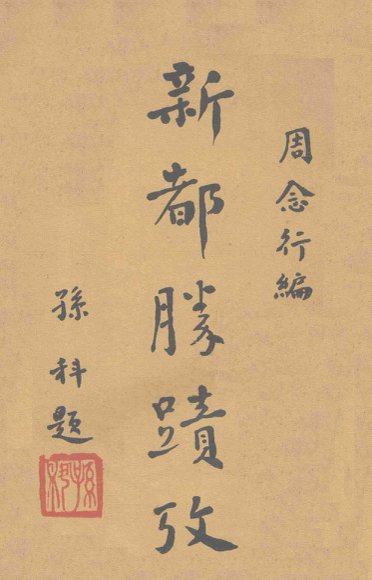 周念行編
新都勝蹟攷
孫科題